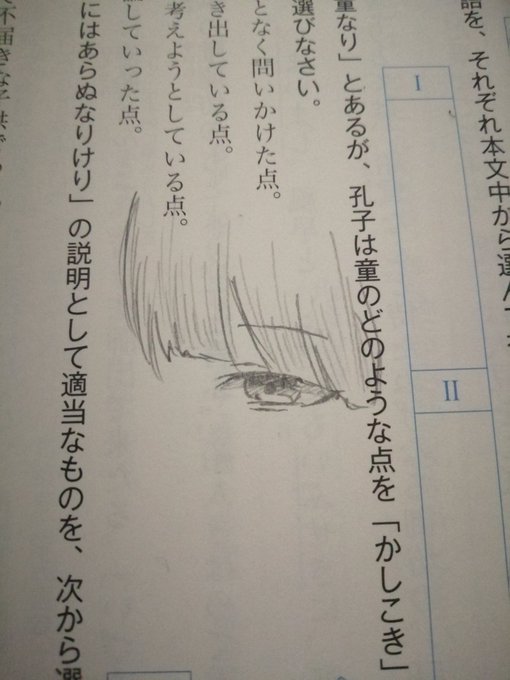 語を、それぞれ本文中から選んで
I
II
童なり」とあるが、孔子は童のどのような点を「かしこき」
選びなさい。
となく問いかけた点。
き出している点。
考えようとしている点。
していった点。
にはあらぬなりけり」の説明として適当なものを、次から選